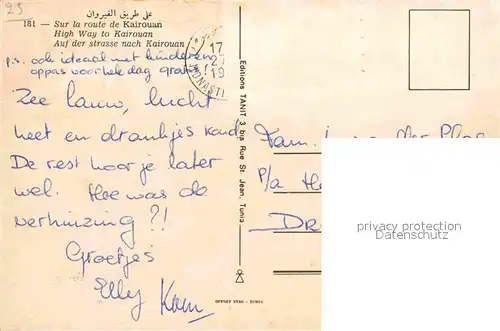 23
على طريق القيروان
181 — Sur la route de Kairouan
High Way to Kairouan
Auf der strasse nach Kairouan
p.s. ook ideaal met kinderen,
oppas voor hele dag gratis!
17
Zee lauw, lucht
heet en drankjes koud
De rest hoor je later
wel. Hoe was de
verhuizing?!
Groetjes
Elly
Editions TANIT 3 bis Rue St. Jean, Tunis
Fam. der
P/a
privacy protection
Datenschutz
OFFSET STAG - TUNIS